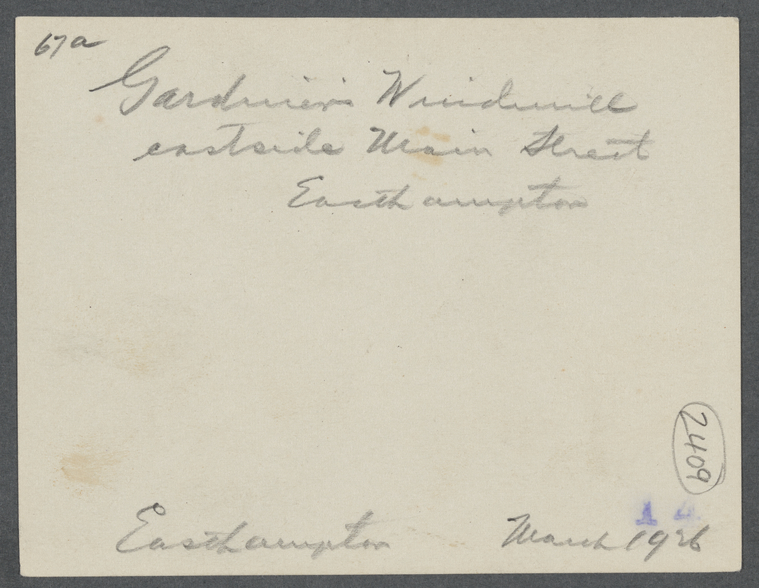 67a
Gardiner's Windmill
eastside Main Street
Easthampton
2409
Easthampton March 1926